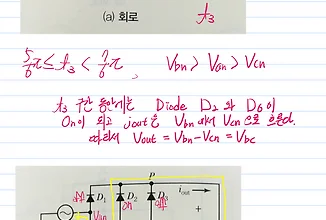 (a) 회로
t₃
5/6π ≤ t₃ < 7/6π , Vbn > Van > Vcn
t₃ 구간 동안에는 Diode D₂ 와 D₆이
On이 되고 iout은 Vbn 에서 Vcn으로 흐른다.
따라서 Vout = Vbn - Vcn = Vbc
P
D₁ on D₂ D₃ iout
Van +